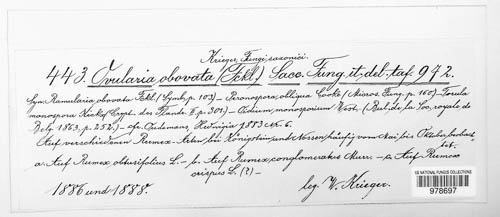 Krieger, Fungi saxonici.
443. Ovularia obovata (Fckl.) Sacc. Fung. it. del. taf. 972.
Syn. Ramularia obovata Fckl. (Symb. p. 103) – Peronospora obliqua Cooke (Micros. Fungi p. 160) – Torula
monospora Kickx f. Crypt. des Flandr. II p. 301) – Oidium monosporium West. (Bul. de la Soc. royale de
Belg. 1863, p. 252.) – cfr. Oudemans, Hedwigia 1883 6.
Auf verschiedenen Rumex-Arten bei Königstein und Nossen, häufig vom Mai bis Oktober,
a. Auf Rumex obtusifolius L. – b. Auf Rumex conglomeratus Murr. – c. Auf Rumex
crispus L. (?) –
1886 und 1888. leg. W. Krieger.
US NATIONAL FUNGUS COLLECTIONS
978697